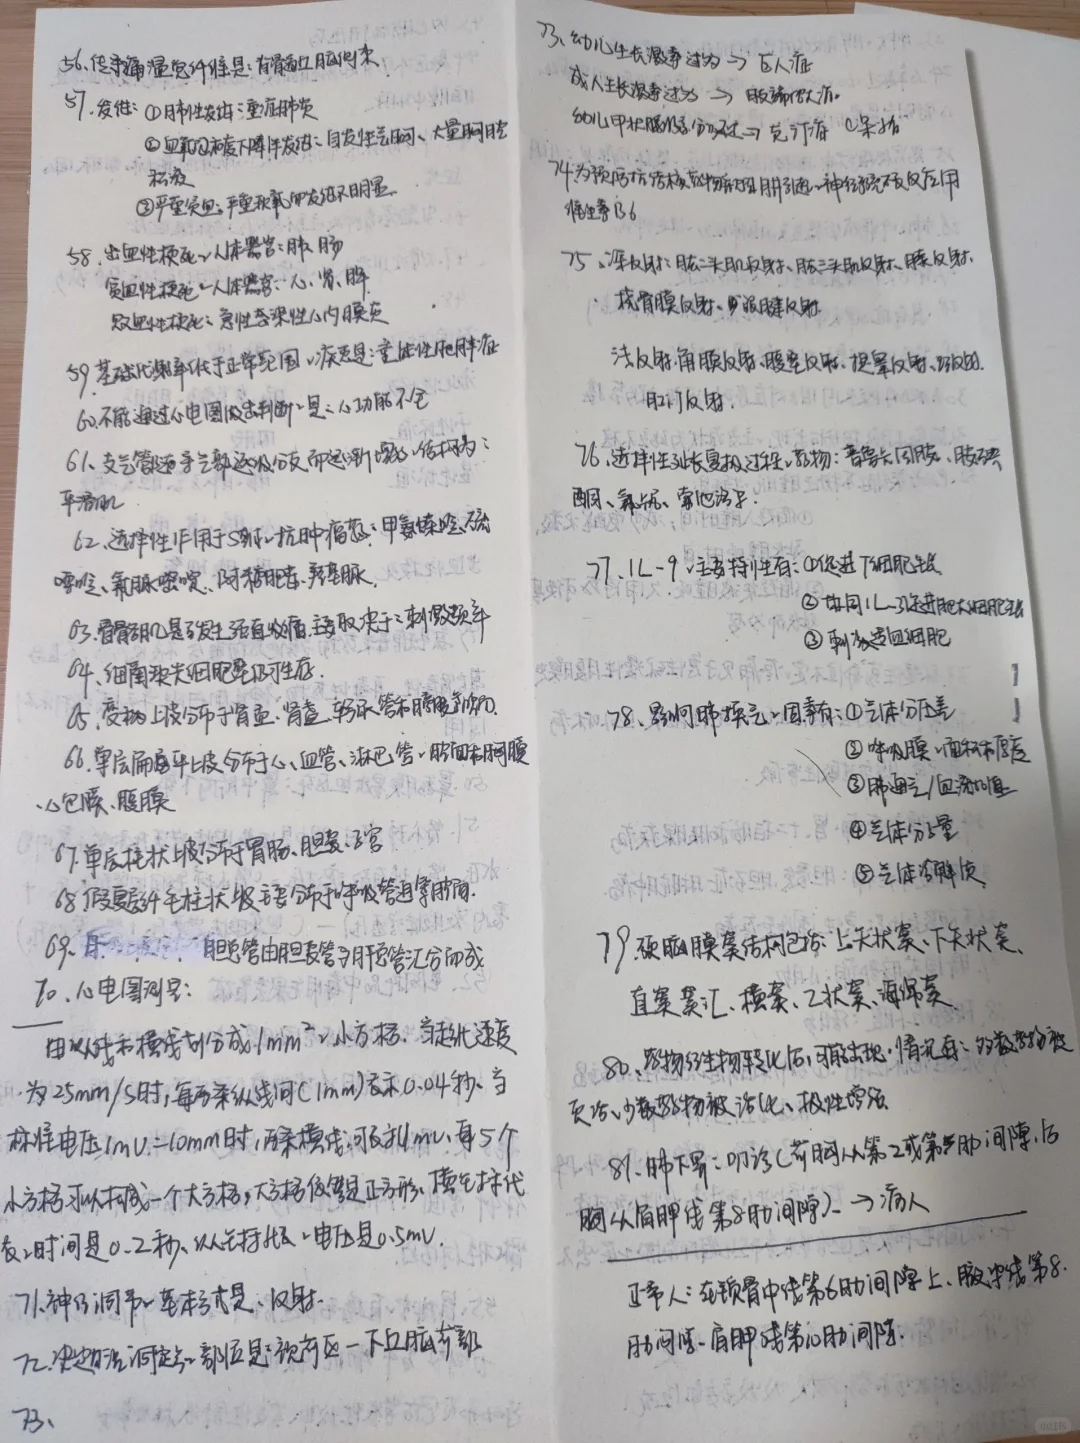 56、传导痛温觉纤维是:脊髓丘脑侧束
57、发绀:①肺性发绀:重症肺炎
②血氧饱和度下降伴发绀:自发性气胸、大量胸腔
积液
③严重贫血,严重缺氧但发绀不明显
58、出血性梗死的人体器官:肺、肠
贫血性梗死的人体器官:心、肾、脾
败血性梗死:急性感染性心内膜炎
59、基础代谢率低于正常范围的疾患是:重性肥胖症
60、不能通过心电图做出判断的是:心功能不全
61、支气管随导气部逐级分支而逐渐增多的结构为:
平滑肌
62、选择性作用于S期的抗肿瘤药:甲氨蝶呤、巯
嘌呤、氟脲嘧啶、阿糖胞苷、羟基脲
63、骨骼肌是否发生强直收缩,主要取决于:刺激频率
64、细菌缺失细胞壁仍可生存
65、变移上皮分布于肾盂、肾盏、输尿管和膀胱等的腔面
66、单层扁平上皮分布于心、血管、淋巴管的腔面和胸膜
、心包膜、腹膜
67、单层柱状上皮分布于胃肠、胆囊、子宫
68、假复层纤毛柱状上皮主要分布于呼吸管道等腔面
69、胆总管由胆囊管与肝总管汇合而成
70、心电图测量:
由纵线和横线划分成1mm²的小方格、当走纸速度
为25mm/s时,每两条纵线间(1mm)表示0.04秒、当
标准电压1mV=10mm时,两条横线间表示0.1mV,每5个
小方格可以构成一个大方格,大方格仍然是正方形、横坐标代
表的时间是0.2秒、纵坐标代表的电压是0.5mV.
71、神经调节的基本方式是、反射.
72、决定体温调定点的部位是:视前区—下丘脑前部
73、
73、幼儿生长激素过多→巨人症
成人生长激素过多→肢端肥大症
幼儿甲状腺分泌不足→克汀病 (呆小症
74、为预防抗结核药物异烟肼引起的神经系统不良反应用
维生素B6
75、深反射:肱二头肌反射、肱三头肌反射、膝反射、
桡骨膜反射、跟腱反射
浅反射:角膜反射、腹壁反射、提睾反射、跖反射、
肛门反射.
76、选择性延长复极过程的药物:普鲁卡因胺、胺碘
酮、索他洛尔
77、IL-9的主要特性有:①促进T细胞生长
②协同IL-3促进肥大细胞生长
③刺激造血细胞
78、影响肺换气的因素有:①气体分压差
②呼吸膜的面积和厚度
③肺通气/血流比值
④气体分子量
⑤气体溶解度
79、硬脑膜窦结构包括:上矢状窦、下矢状窦、
直窦、窦汇、横窦、乙状窦、海绵窦
80、药物经生物转化后,可能出现的情况有:多数药物被
灭活、少数药物被活化、极性增强
81、肺下界:叩诊(前胸从第2或第3肋间隙、后
胸从肩胛线第8肋间隙)→病人
正常人:在锁骨中线第6肋间隙上、腋中线第8
肋间隙、肩胛线第10肋间隙.